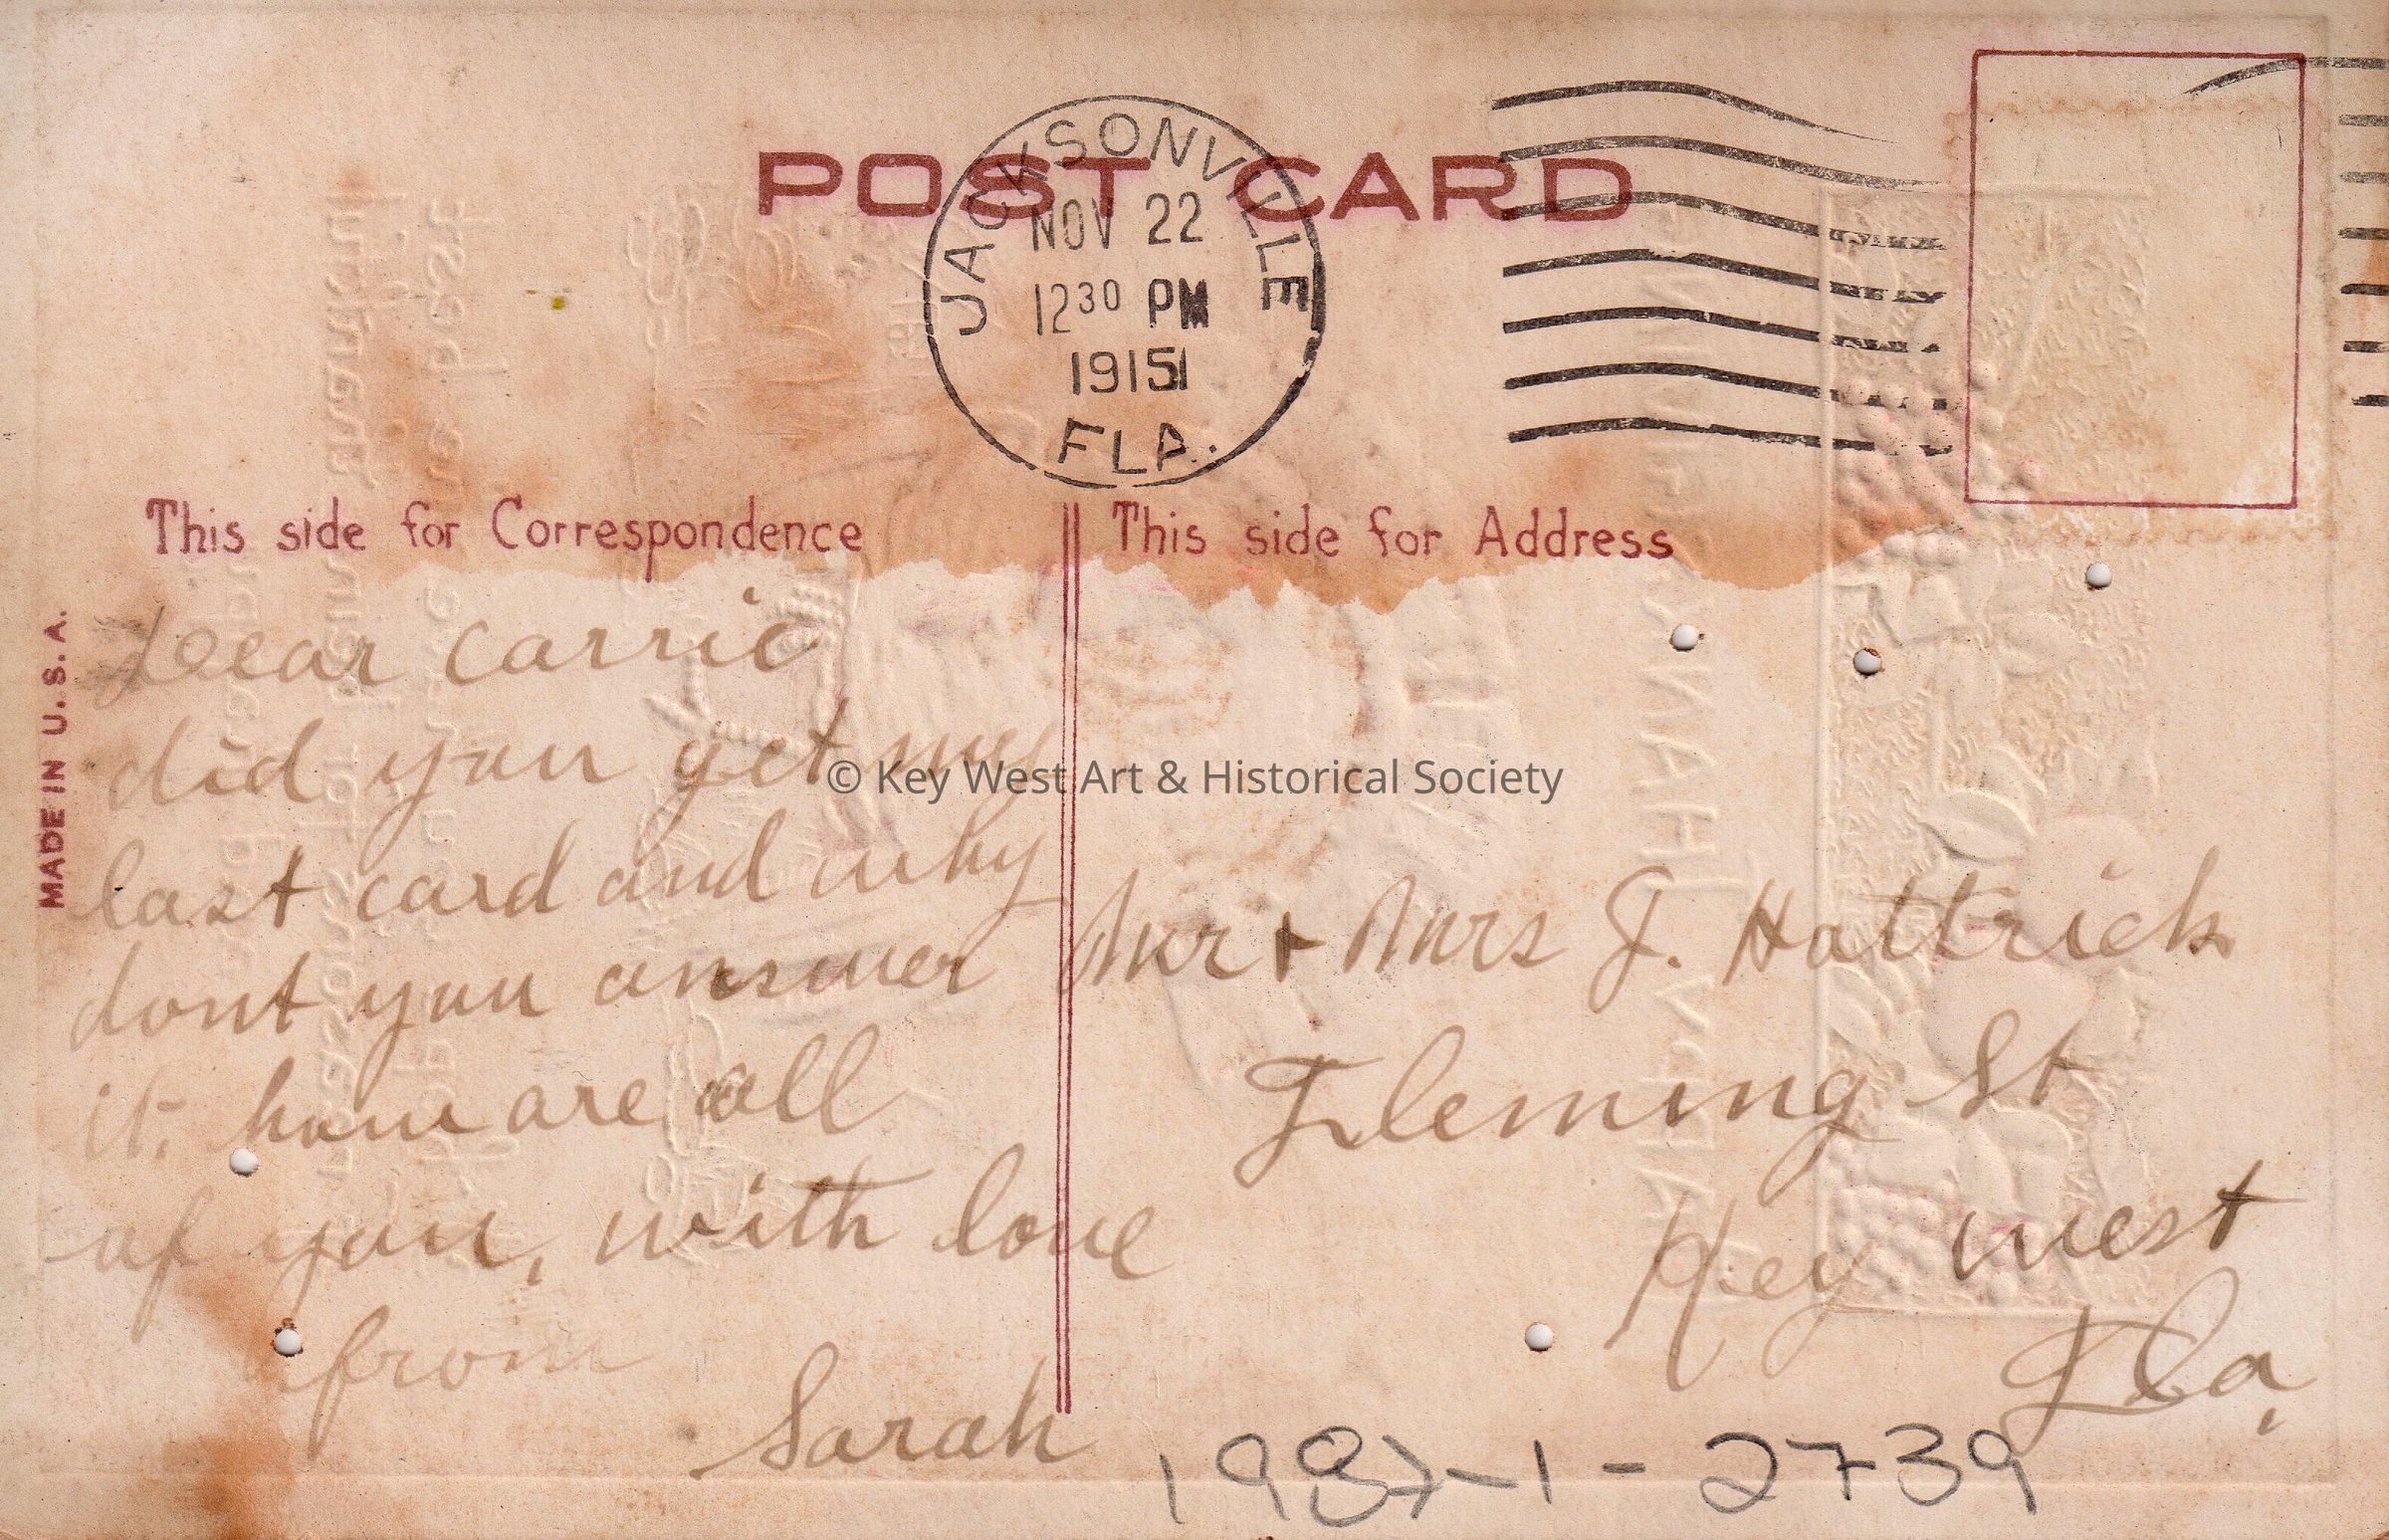 POST CARD
JACKSONVILLE
NOV 22
12 30 PM
1915
FLA.
This side for Correspondence
This side for Address
MADE IN U.S.A.
Dear Carrie
did you get my
last card and why
dont you answer
it. how are all
of you, with love
from
Sarah
Mr + Mrs J. Hattrick
Fleming St
Key west
Fla.
1987-1-2739
© Key West Art & Historical Society